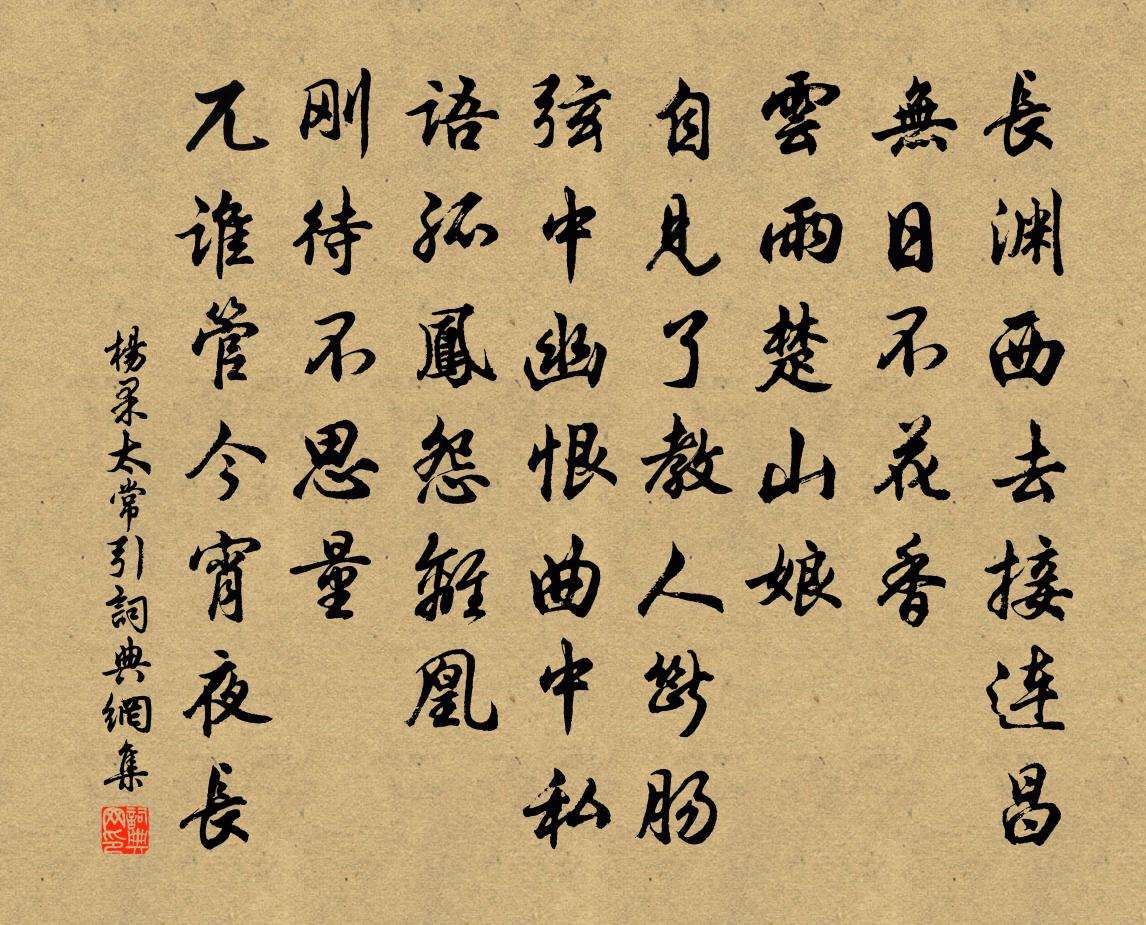 長渊西去接連昌
無日不花香
雲雨楚山娘
自見了教人斷腸
弦中幽恨曲中私
語孤鳳怨離凰
刚待不思量
兀誰管今宵夜長
楊果太常引詞典網集
詞典网印